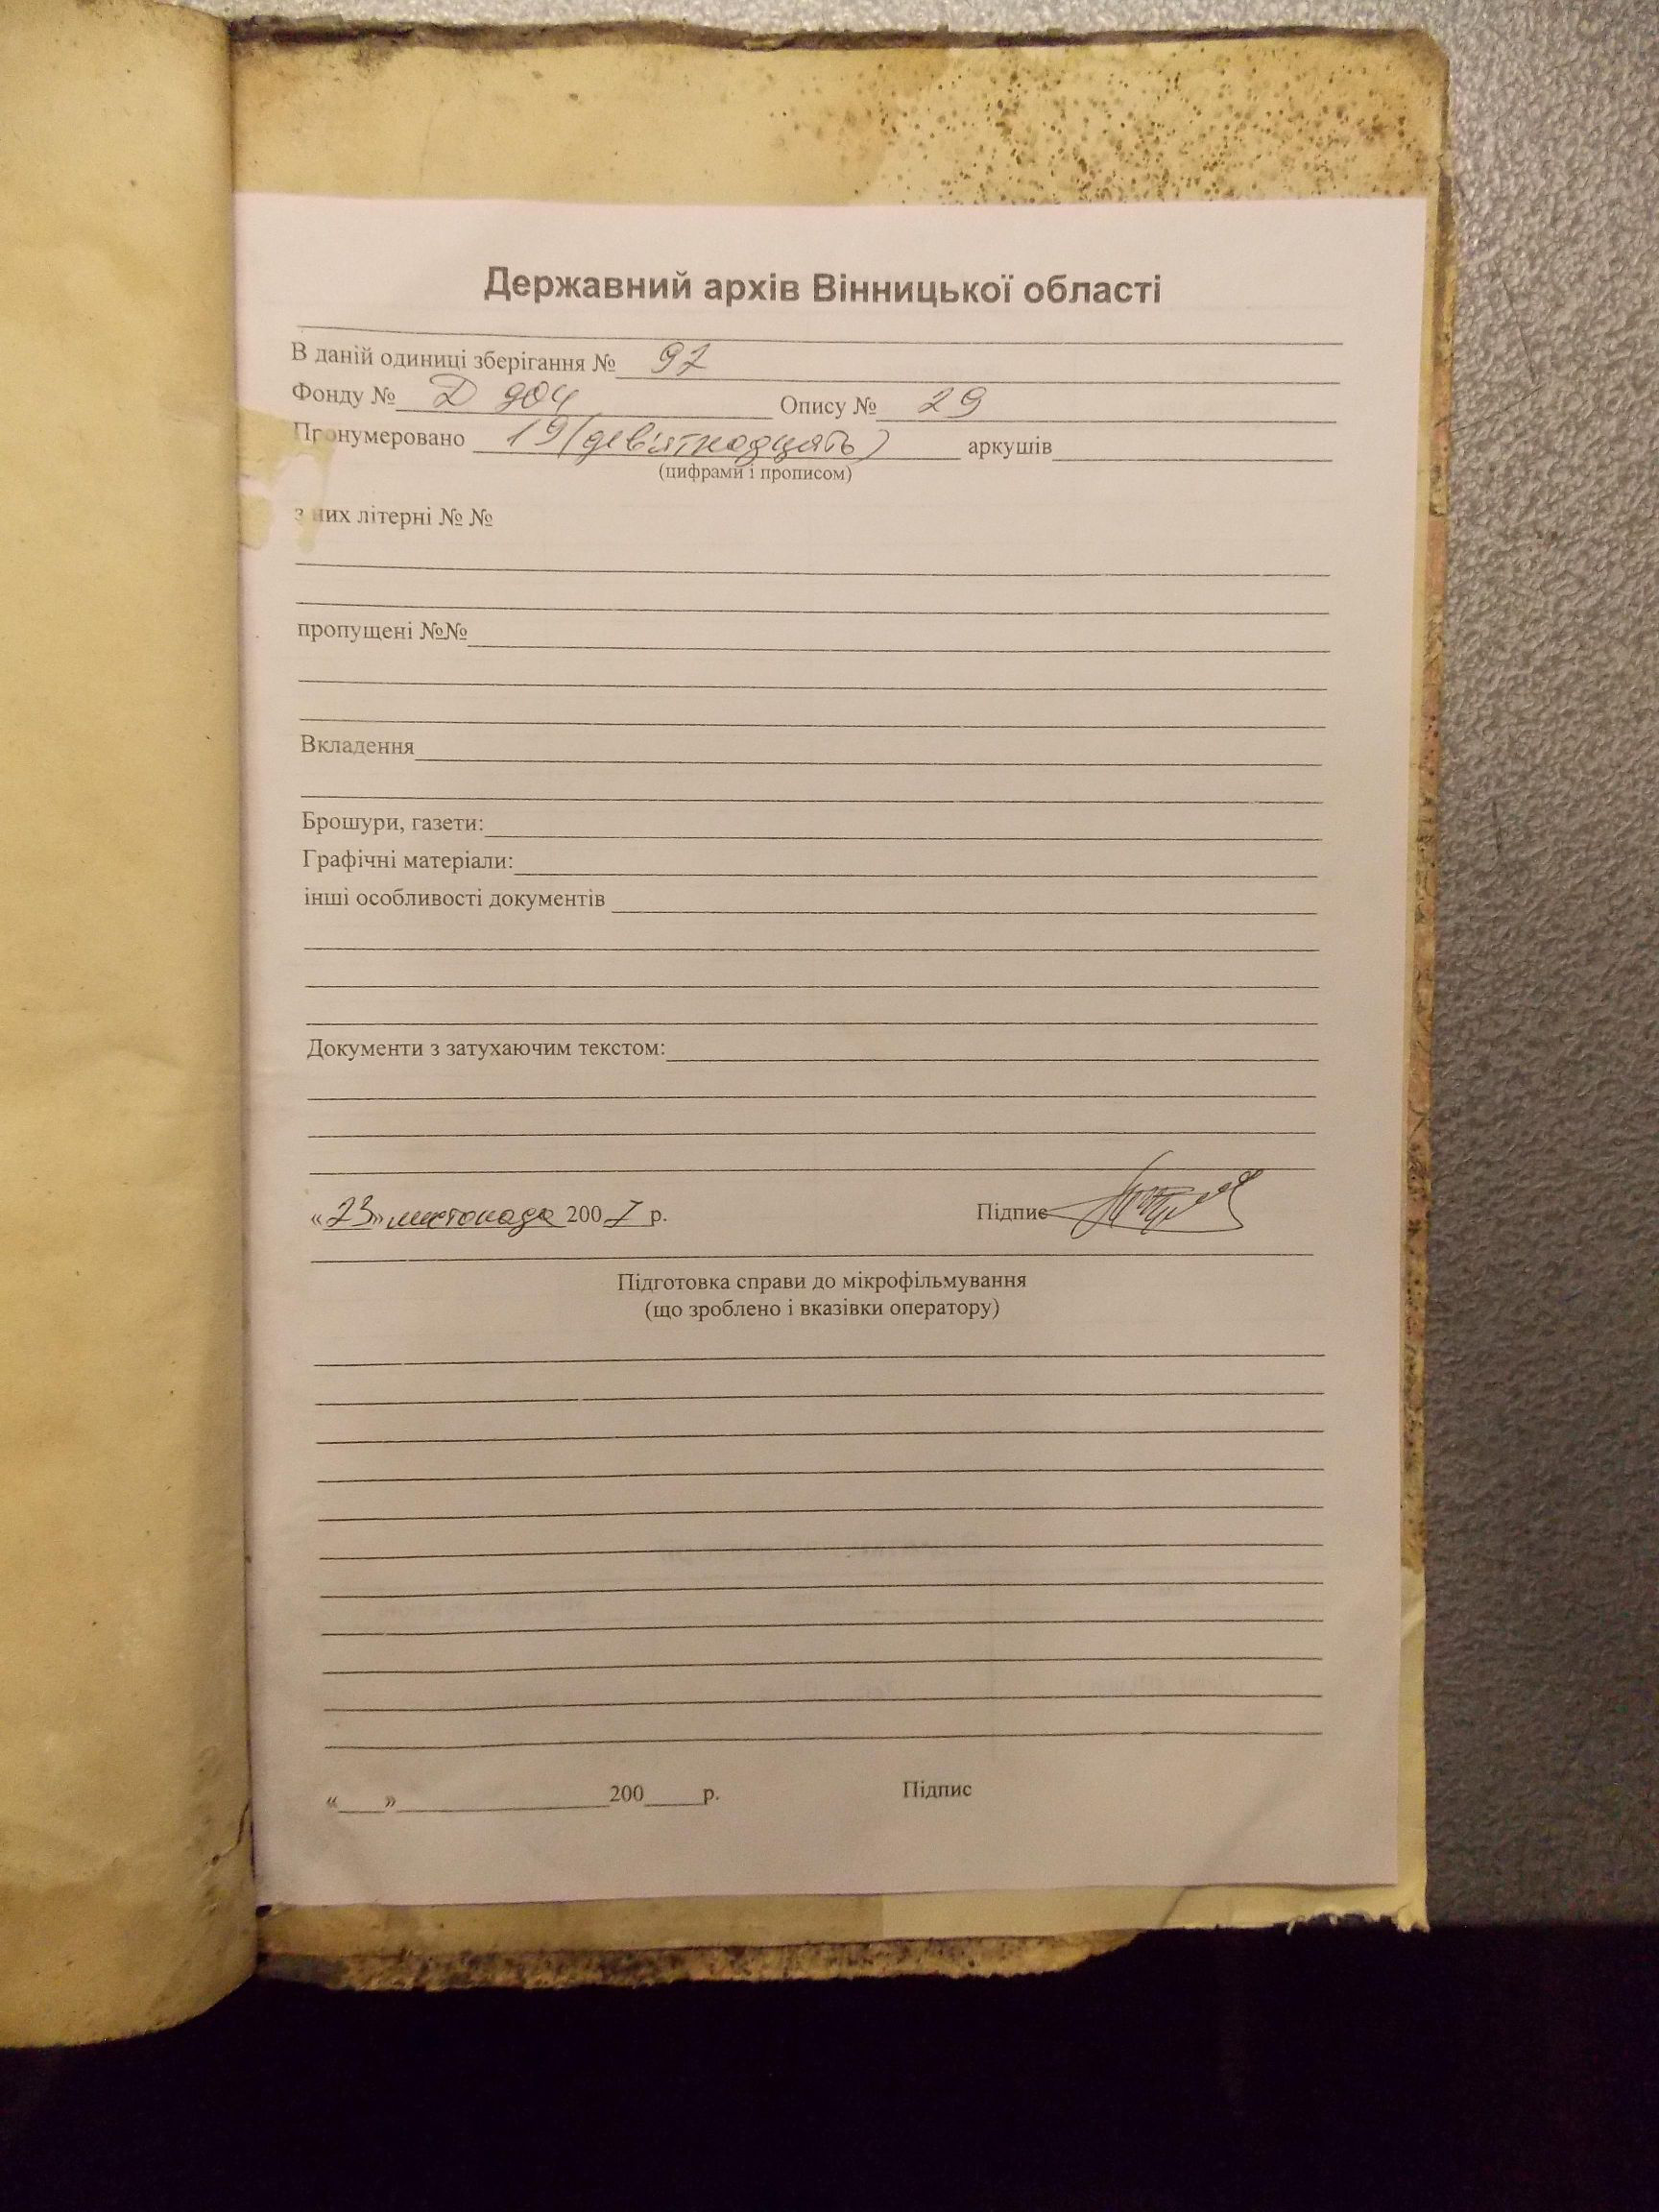 Державний архів Вінницької області
В даній одиниці зберігання № 97
Фонду № Д 904 Опису № 29
Пронумеровано 19 (дев'ятнадцять) аркушів
(цифрами і прописом)
з них літерні № №
пропущені №№
Вкладення
Брошури, газети:
Графічні матеріали:
інші особливості документів
Документи з затухаючим текстом:
«23» листопада 2007 р. Підпис
Підготовка справи до мікрофільмування
(що зроблено і вказівки оператору)
«___»___ 200___р. Підпис